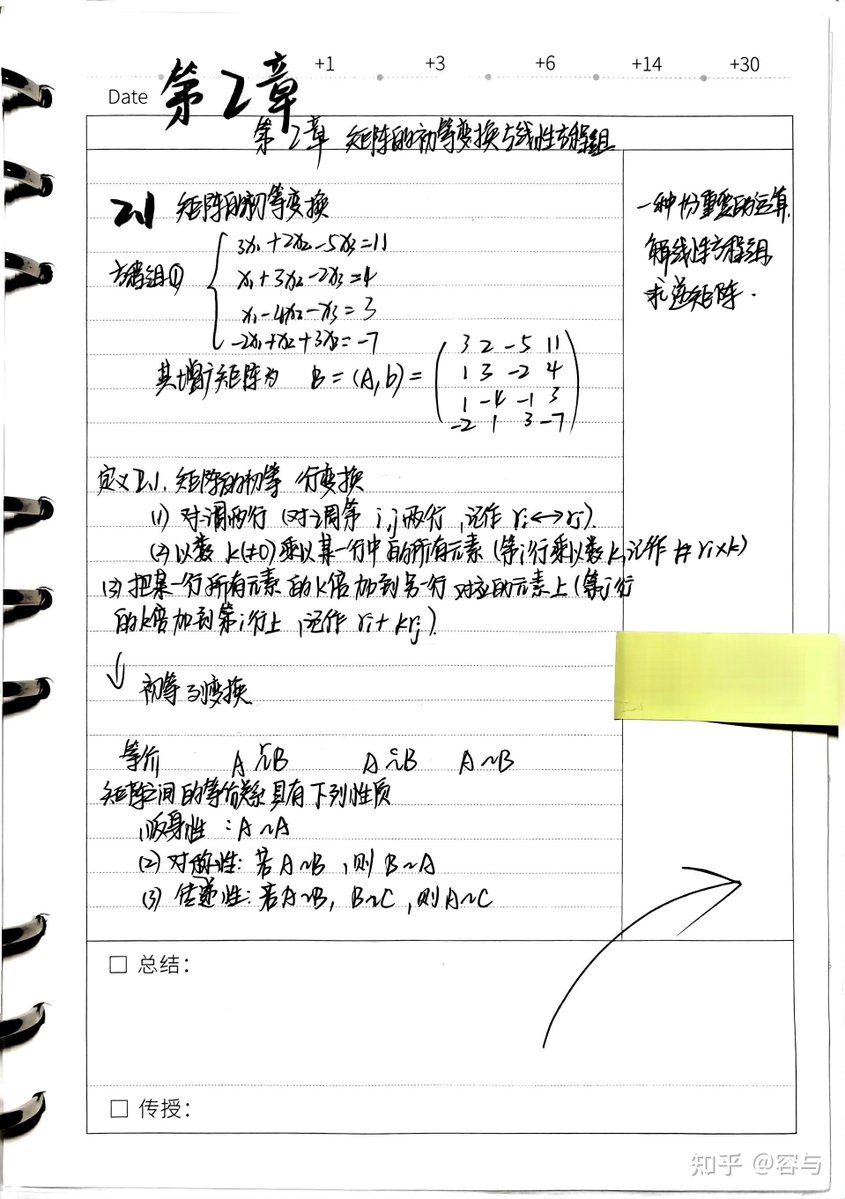 +1 +3 +6 +14 +30
Date 第2章
第2章 矩阵的初等变换与线性方程组
2.1 矩阵的初等变换
方程组①
3x₁+2x₂-5x₃=11
x₁+3x₂-2x₃=4
x₁-4x₂-x₃=3
-2x₁+x₂+3x₃=-7
其增广矩阵为 B=(A,b)=
3 2 -5 11
1 3 -2 4
1 -4 -1 3
-2 1 3 -7
定义2.1.矩阵的初等行变换
(1) 对调两行(对调第i,j两行,记作 rᵢ↔rⱼ).
(2) 以数k(≠0)乘以某一行中的所有元素(第i行乘以数k,记作 rᵢ×k)
(3) 把某一行所有元素的k倍加到另一行对应的元素上(第j行
的k倍加到第i行上,记作 rᵢ+krⱼ).
↓ 初等列变换
等价 A r~B A c~B A~B
矩阵之间的等价关系具有下列性质
(1)反身性:A~A
(2) 对称性:若A~B,则B~A
(3) 传递性:若A~B,B~C,则A~C
一种十分重要的运算.
解线性方程组
求逆矩阵.
□ 总结:
□ 传授:
知乎 @容与